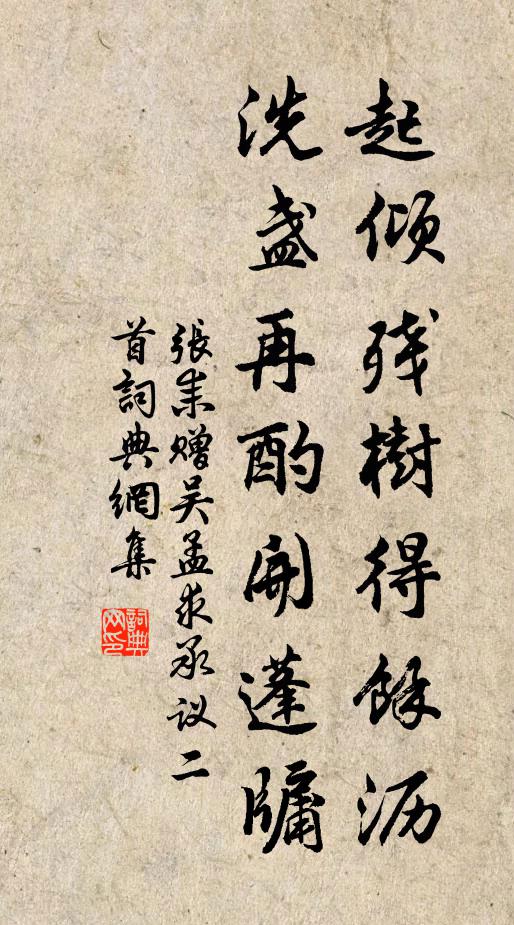 起倾残樹得餘沥
洗盏再酌開蓬牖
張耒赠吴孟求承议二
首詞典網集
詞典
网印